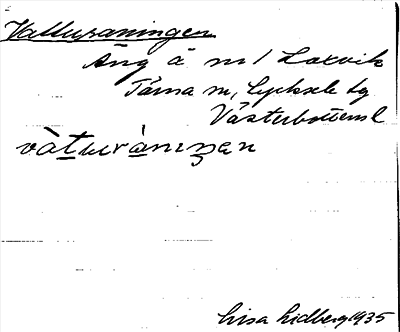 Vatturaningen
Äng å m/ Laxvik
Tärna sn, Lycksele lg
Västerbottens l
vàturániŋen
Lisa Lidberg 1935